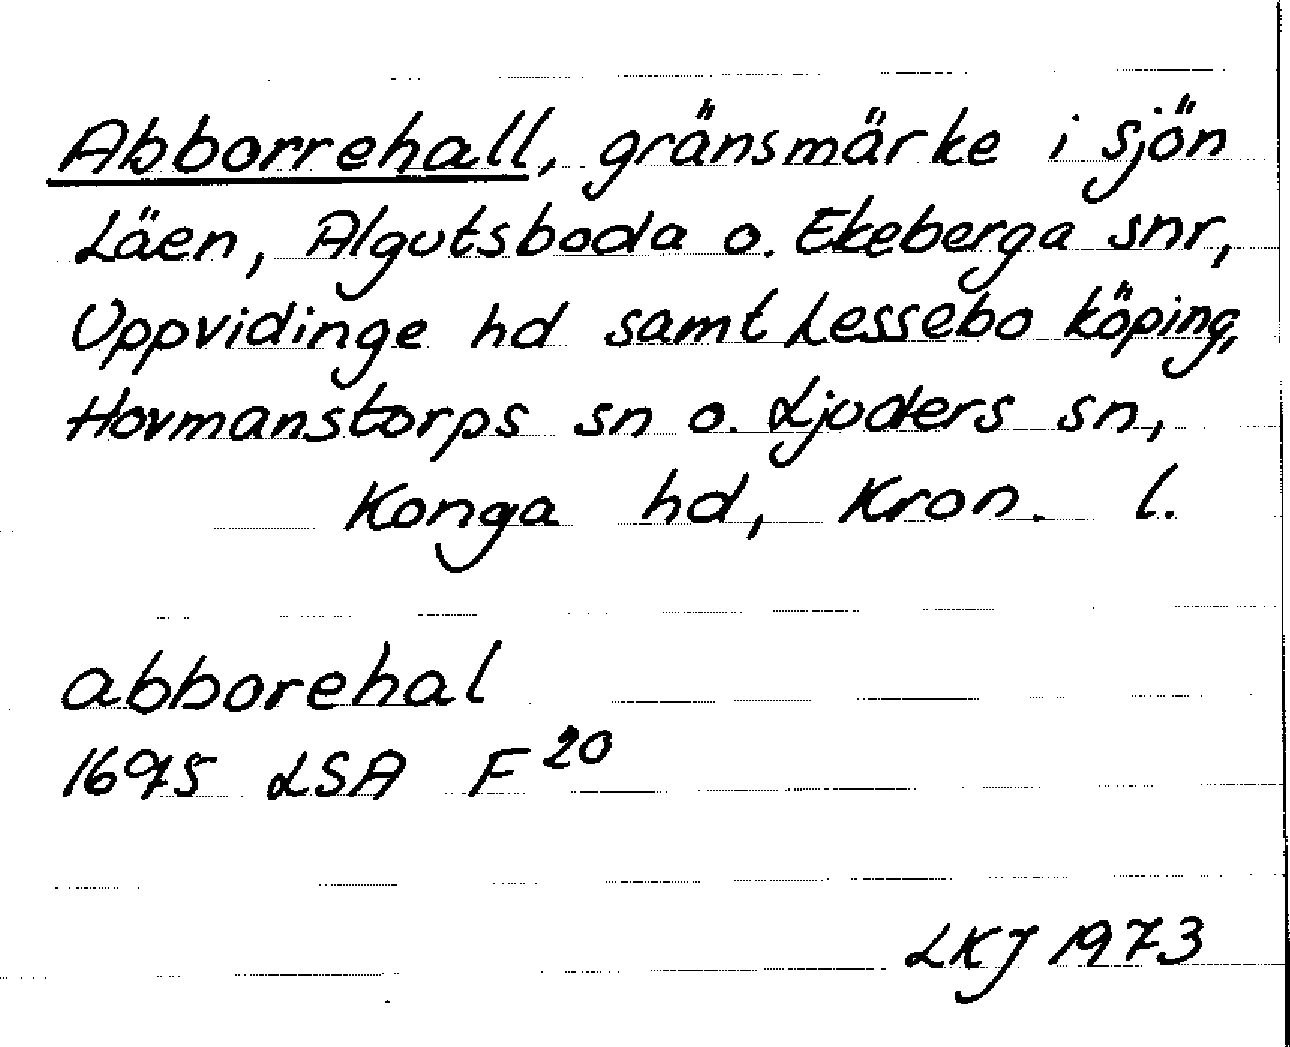 Abborrehall, gränsmärke i sjön
Läen, Algutsboda o. Ekeberga snr,
Uppvidinge hd samt Lessebo köping,
Hovmanstorps sn o. Ljuders sn,
Konga hd, Kron. l.
abborehal
1695 LSA F 20
LKJ 1973